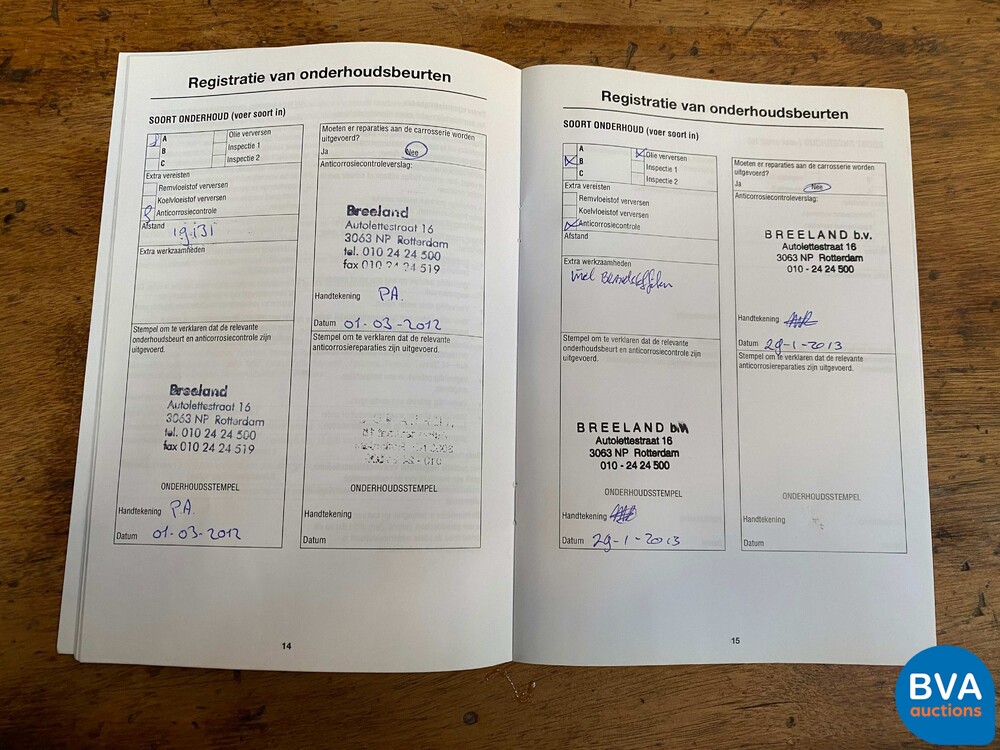 Registratie van onderhoudsbeurten
SOORT ONDERHOUD (voer soort in)
A
B
C
Olie verversen
Inspectie 1
Inspectie 2
Extra vereisten
Remvloeistof verversen
Koelvloeistof verversen
Anticorrosiecontrole
Afstand 19.131
Extra werkzaamheden
Stempel om te verklaren dat de relevante
onderhoudsbeurt en anticorrosiecontrole zijn
uitgevoerd.
Breeland
Autolettestraat 16
3063 NP Rotterdam
tel. 010 24 24 500
fax 010 24 24 519
ONDERHOUDSSTEMPEL
Handtekening PA.
Datum 01-03-2012
Moeten er reparaties aan de carrosserie worden
uitgevoerd?
Ja Nee
Anticorrosiecontroleverslag:
Breeland
Autolettestraat 16
3063 NP Rotterdam
tel. 010 24 24 500
fax 010 24 24 519
Handtekening PA.
Datum 01-03-2012
Stempel om te verklaren dat de relevante
anticorrosiereparaties zijn uitgevoerd.
ONDERHOUDSSTEMPEL
Handtekening
Datum
14
Registratie van onderhoudsbeurten
SOORT ONDERHOUD (voer soort in)
A
B
C
Olie verversen
Inspectie 1
Inspectie 2
Extra vereisten
Remvloeistof verversen
Koelvloeistof verversen
Anticorrosiecontrole
Afstand
Extra werkzaamheden
Stempel om te verklaren dat de relevante
onderhoudsbeurt en anticorrosiecontrole zijn
uitgevoerd.
BREELAND b.v.
Autolettestraat 16
3063 NP Rotterdam
010 - 24 24 500
ONDERHOUDSSTEMPEL
Handtekening
Datum 29-1-2013
Moeten er reparaties aan de carrosserie worden
uitgevoerd?
Ja Nee
Anticorrosiecontroleverslag:
BREELAND b.v.
Autolettestraat 16
3063 NP Rotterdam
010 - 24 24 500
Handtekening
Datum 29-1-2013
Stempel om te verklaren dat de relevante
anticorrosiereparaties zijn uitgevoerd.
ONDERHOUDSSTEMPEL
Handtekening
Datum
15
BVA
auctions